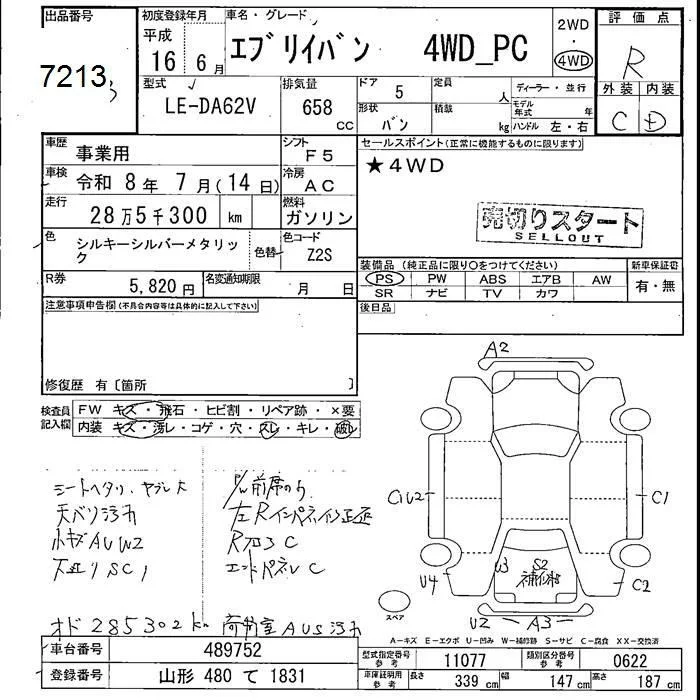 出品番号
7213
初度登録年月
平成
16年 6月
車名・グレード
エブリイバン 4WD_PC
2WD
・
4WD
評価点
R
外装 内装
C D
型式
LE-DA62V
排気量
658
CC
ドア
5
形状
バン
定員
人
積載
kg
ディーラー・並行
モデル年式 年
ハンドル 左・右
車歴
事業用
シフト
F5
車検
令和 8年 7月(14日)
冷房
AC
走行
28万5千300 km
燃料
ガソリン
色
シルキーシルバーメタリック
色替
色コード
Z2S
R券
5,820円
名変通知期限
月 日
セールスポイント(正常に機能するものに限ります)
★4WD
売切りスタート
SELLOUT
装備品(純正品に限り〇をつけてください)
PS PW ABS エアB AW
SR ナビ TV カワ
新車保証書
有・無
後日品
注意事項申告欄(不具合内容等は具体的に記入して下さい)
修復歴 有〔箇所 〕
検査員記入欄
FW キズ・飛石・ヒビ割・リペア跡・×要
内装 キズ・汚レ・コゲ・穴・スレ・キレ・破レ
シートヘタリ、ヤブレ大
天バリ汚れ
小キズAUW2
下廻りSC1
左Rインパネ
エンドパネルC
オド285302km 荷物室AUS汚れ
A2
C1U2
C1
U4
W3
S2
C2
U2
A3
スペア
A-キズ E-エクボ U-凹み W-補修跡 S-サビ C-腐食 XX-交換済
車台番号
489752
登録番号
山形 480 て 1831
型式指定番号
参考
11077
類別区分番号
参考
0622
車庫証明用
参考
長さ
339 cm
幅
147 cm
高さ
187 cm